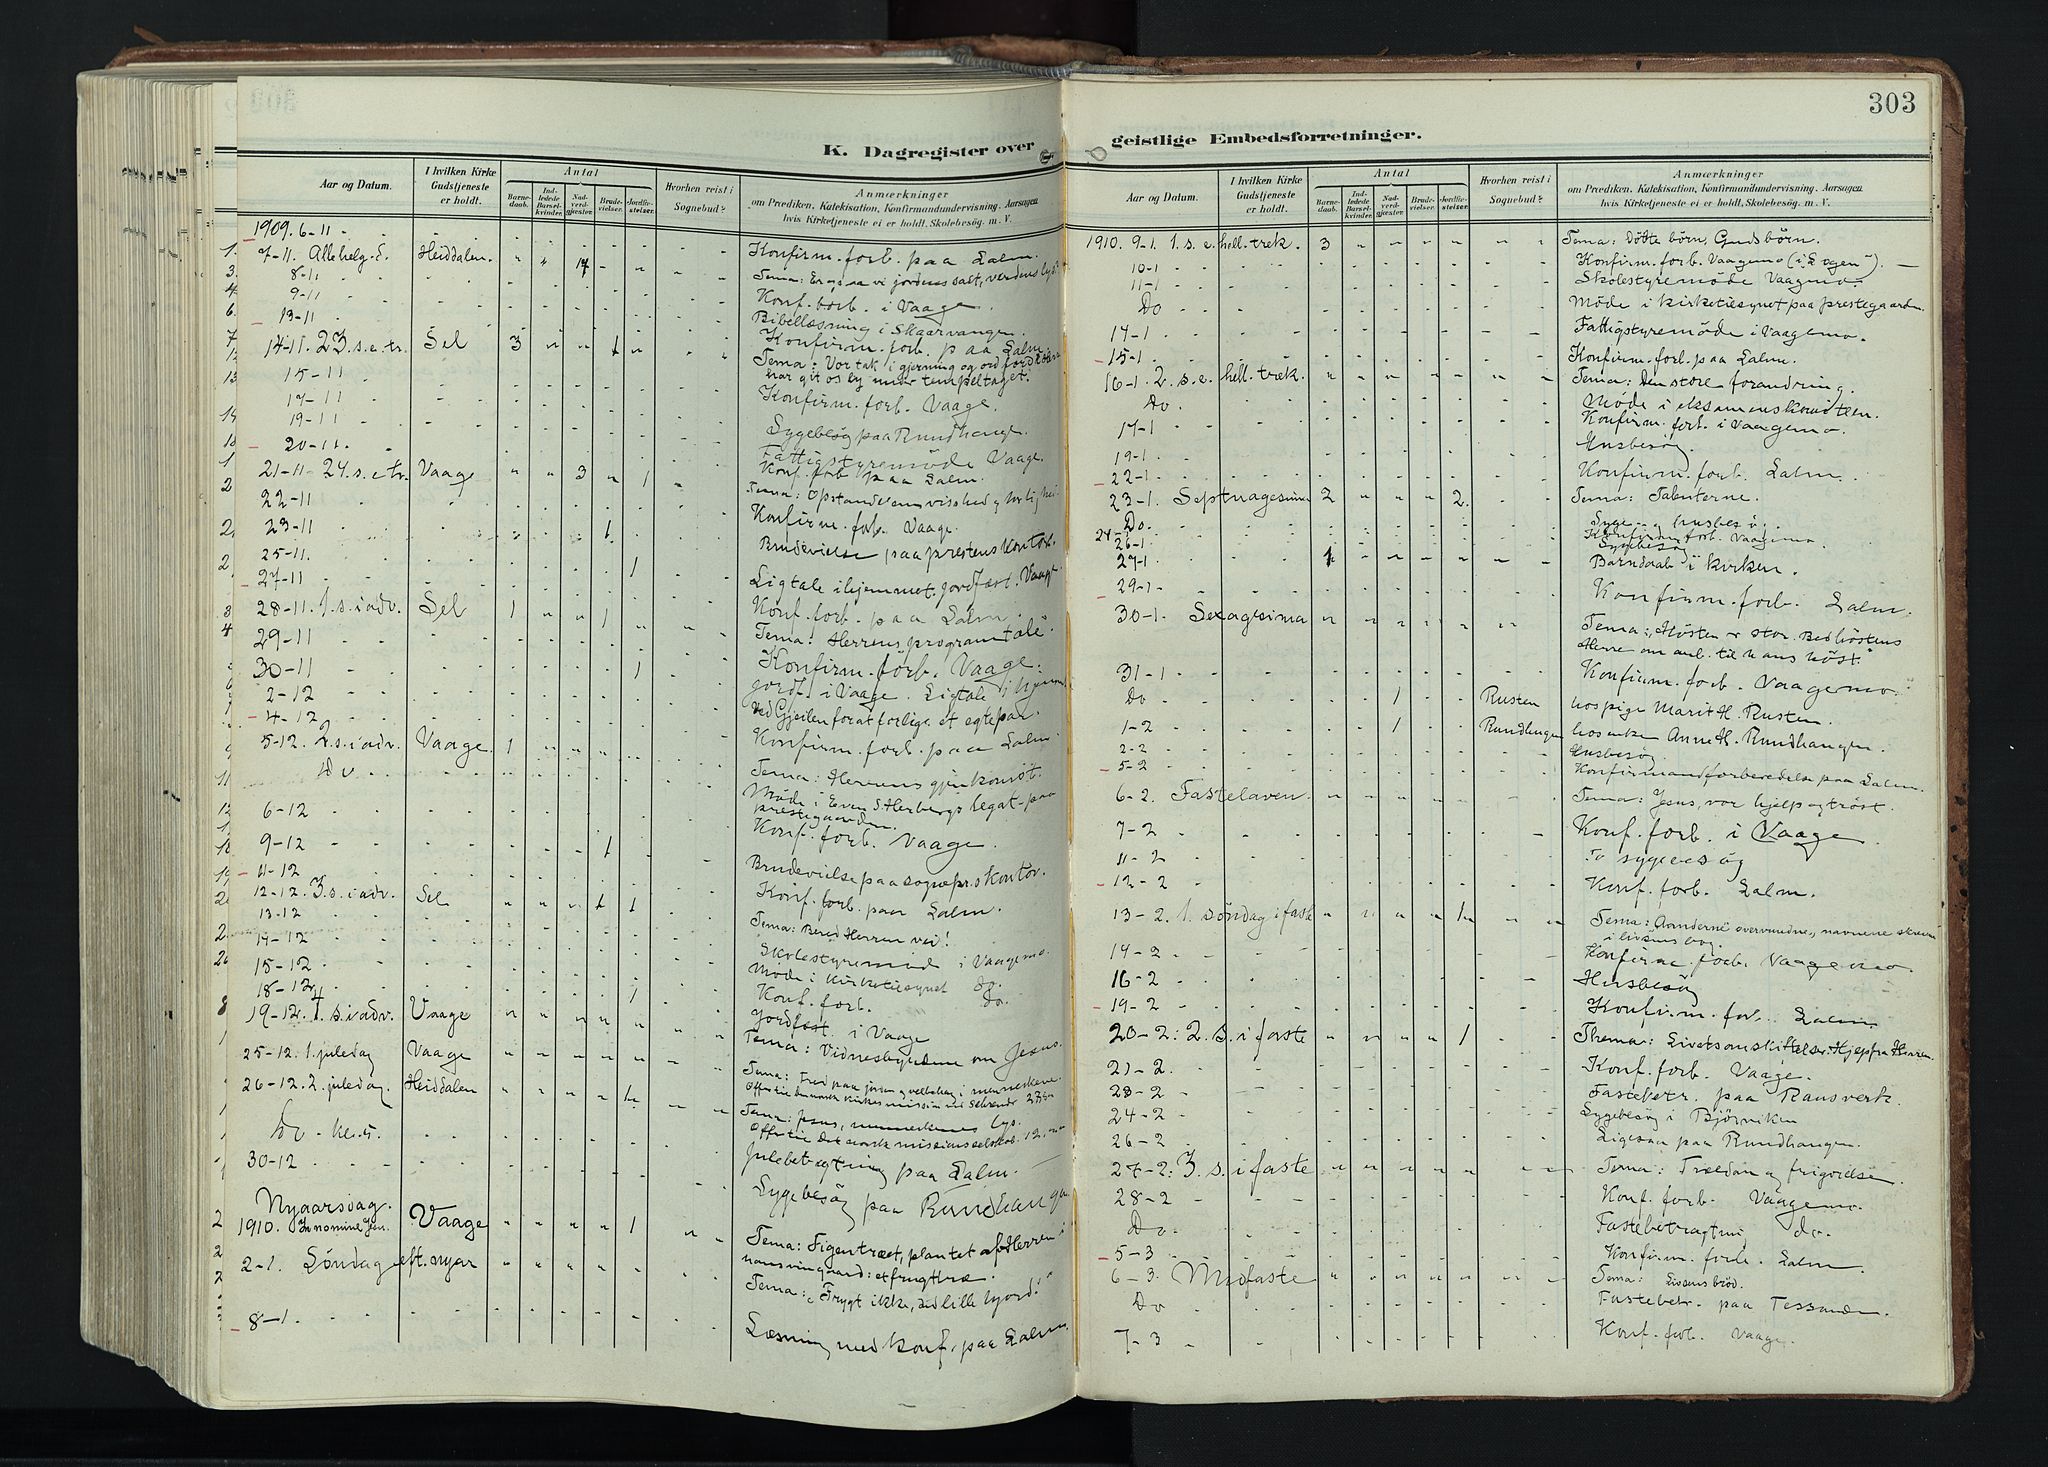 K. Dagregister over
Aar og Datum.
I hvilken Kirke Gudstjeneste er holdt.
Antal
Barnedaab.
Indledede Barselkvinder.
Nadverdgjester.
Brudevielser.
Jordfæstelser.
Hvorhen reist i Sognebud?
Anmærkninger
om Prædiken, Katekisation, Konfirmandundervisning, Aarsagen
hvis Kirketjeneste ei er holdt, Skolebesøg. m. V.
1909. 6-11
Konfirm. forb. paa Lalm.
7-11. Allehelg. d. Heiddalen. " " 17
Tema: Ogsaa vi jordens salt, verdens lys.
8-11
Konf. forb. i Vaage
9-11
Bibellæsning i Skaarvangen.
13-11
Konfirm. forb. paa Lalm.
14-11. 23. s. e. tr. Sel 3 " " 1 "
Tema: Vor tak i gjerning og ord fordi
har git os ly under tempeltaget.
15-11
Konfirm. forb. Vaage.
17-11
Sygebesøg paa Rundhange.
19-11
Fattigstyremøde Vaage.
20-11.
Konf. forb. paa Lalm.
21-11 24. s. e tr. Vaage " " 3 " 1
Tema: Opstandelsens visshed og herlighei
22-11
Konfirm. forb. Vaage.
23-11 1.
Brudevielse paa prestens kontor.
25-11. 1
Ligtale i hjemmet. Jordfæst. Vaage
27-11
Konf. forb. paa Lalm.
28-11. 1. s. i adv. Sel 1 " " 1
Tema: Herrens programtale.
29-11
Konfirm. forb. Vaage.
30-11 1
Jordf. i Vaage. Ligtale i hjemm.
2-12
ved Gjeilen for at forlige et egtepar.
4-12
Konfirm. forb. paa Lalm.
5-12. 2. s. i adv. Vaage. 1 " " " "
Tema: Herrens gjenkomst.
Do
Møde i Even S. Herbergs legat paa
prestegaarden.
6-12
Konf. forb. Vaage.
9-12 1
Brudevielse paa sognepr.s kontor.
11-12
Konf. forb. paa Lalm.
12-12. 3. s. i adv. Sel " " " 1 1
Tema: Bered Herren vei!
13-12
Skolestyremød i Vaagemo.
14-12
Møde i Kirketilsynet do.
15-12
Konf. forb. Do.
18-12 1
Jordfæst i Vaage
19-12. 4. s. i adv. Vaage " " " " "
Tema: Vidnesbyrdene om Jesus.
25-12. 1. juledag Vaage " " " " "
Tema: Fred paa jorden og velbehag i menneskene
26-12. 2. juledag. Heiddalen " " " " 1
Tema: Jesus, menneskenes lys.
Do - kl. 5.
Julebetragtning paa Lalm.
30-12
Sygebesøg paa Rundhangen
Nyaarsdag.
1910. In nomine Jesu. Vaage " " " " 1
Tema: Figentræet, plantet af Herren i
hans vingaard: et frugttræ.
2-1. Søndag eft. nyar " " " "
Tema: „Frygt ikke, du lille hjord!“
8-1.
Læsning med konf. paa Lalm
303
geistlige Embedsforretninger.
Aar og Datum.
I hvilken Kirke Gudstjeneste er holdt.
Antal
Barnedaab.
Indledede Barselkvinder.
Nadverdgjester.
Brudevielser.
Jordfæstelser.
Hvorhen reist i Sognebud?
Anmærkninger
om Prædiken, Katekisation, Konfirmandundervisning. Aarsagen
hvis Kirketjeneste ei er holdt, Skolebesøg. m. V.
1910. 9-1. 1. s. e. hell. trek. 3 " " " " Tema: Døbte børn, Gudsbørn.
10-1 Konfirm. forb. Vaagemo (i „Logen“).
11-1 Skolestyremøde Vaagmo.
Do Møde i kirketilsynet paa prestegaarden
14-1 Fattigstyremøde i Vaagemo.
15-1. Konfirm. forb. paa Lalm.
16-1. 2. s. e. hell. trek. " " " " " Tema: Den store forandring.
Do. Møde i eksamenskomiteen.
17-1 Konfirm. forb. i Vaagemo.
19-1. Husbesøg.
22-1. Konfirm. forb. Lalm.
23-1. Septuagesima 2 " " " 2. Tema: Talenterne.
Do. Syge- og husbesøg.
24-1 Konfirm. forb. Vaagemo
26-1. Sygebesøg
27-1 1 " " " " Barndaab i kirken.
29-1. Konfirm. forb. Lalm.
30-1. Sexagesima " " " " " Tema: „Høsten er stor. Bed høstens
Herre om arb. til hans høst.“
31-1 Konfirm. forb. Vaagemo.
Do 1 Rusten hos pige Marit H. Rusten.
1-2 1 Rundhangen hos enken Anne H. Rundhangen.
2-2 Husbesøg.
5-2 Konfirmandforberedelse paa Lalm.
6-2. Fastelaven " " " " " Tema: Jesus, vor hjelp og trøst.
7-2 Konf. forb. i Vaage
11-2 To sygebesøg
12-2 Konf. forb. Lalm.
13-2. 1. søndag i faste " " " " 1 Tema: Aanderne overvundne, navnene skrevne
i livsens bog.
14-2 Konfirm. forb. Vaagemo.
16-2 Husbesøg
19-2 Konfirm. forb. Lalm.
20-2. 2. s. i faste " " " " 1 Thema: Livets omskiftelser. Hjelp fra Herren.
21-2. Konf. forb. Vaage.
23-2 Fastebetr. paa Ransverk.
24-2 Sygebesøg i Bjørviken
26-2 Ligesaa paa Rundhangen.
27-2. 3. s. i faste " " " " " Tema: Trældom og frigivelse.
28-2 Konf. forb. Vaagemo.
Do Fastebetragtni do.
5-3 Konfirm. forb. Lalm.
6-3. Midfaste " " " " " Tema: Livsens brød.
Do Fastebetr. paa Tessanden.
7-3 Konf. forb. Vaage.